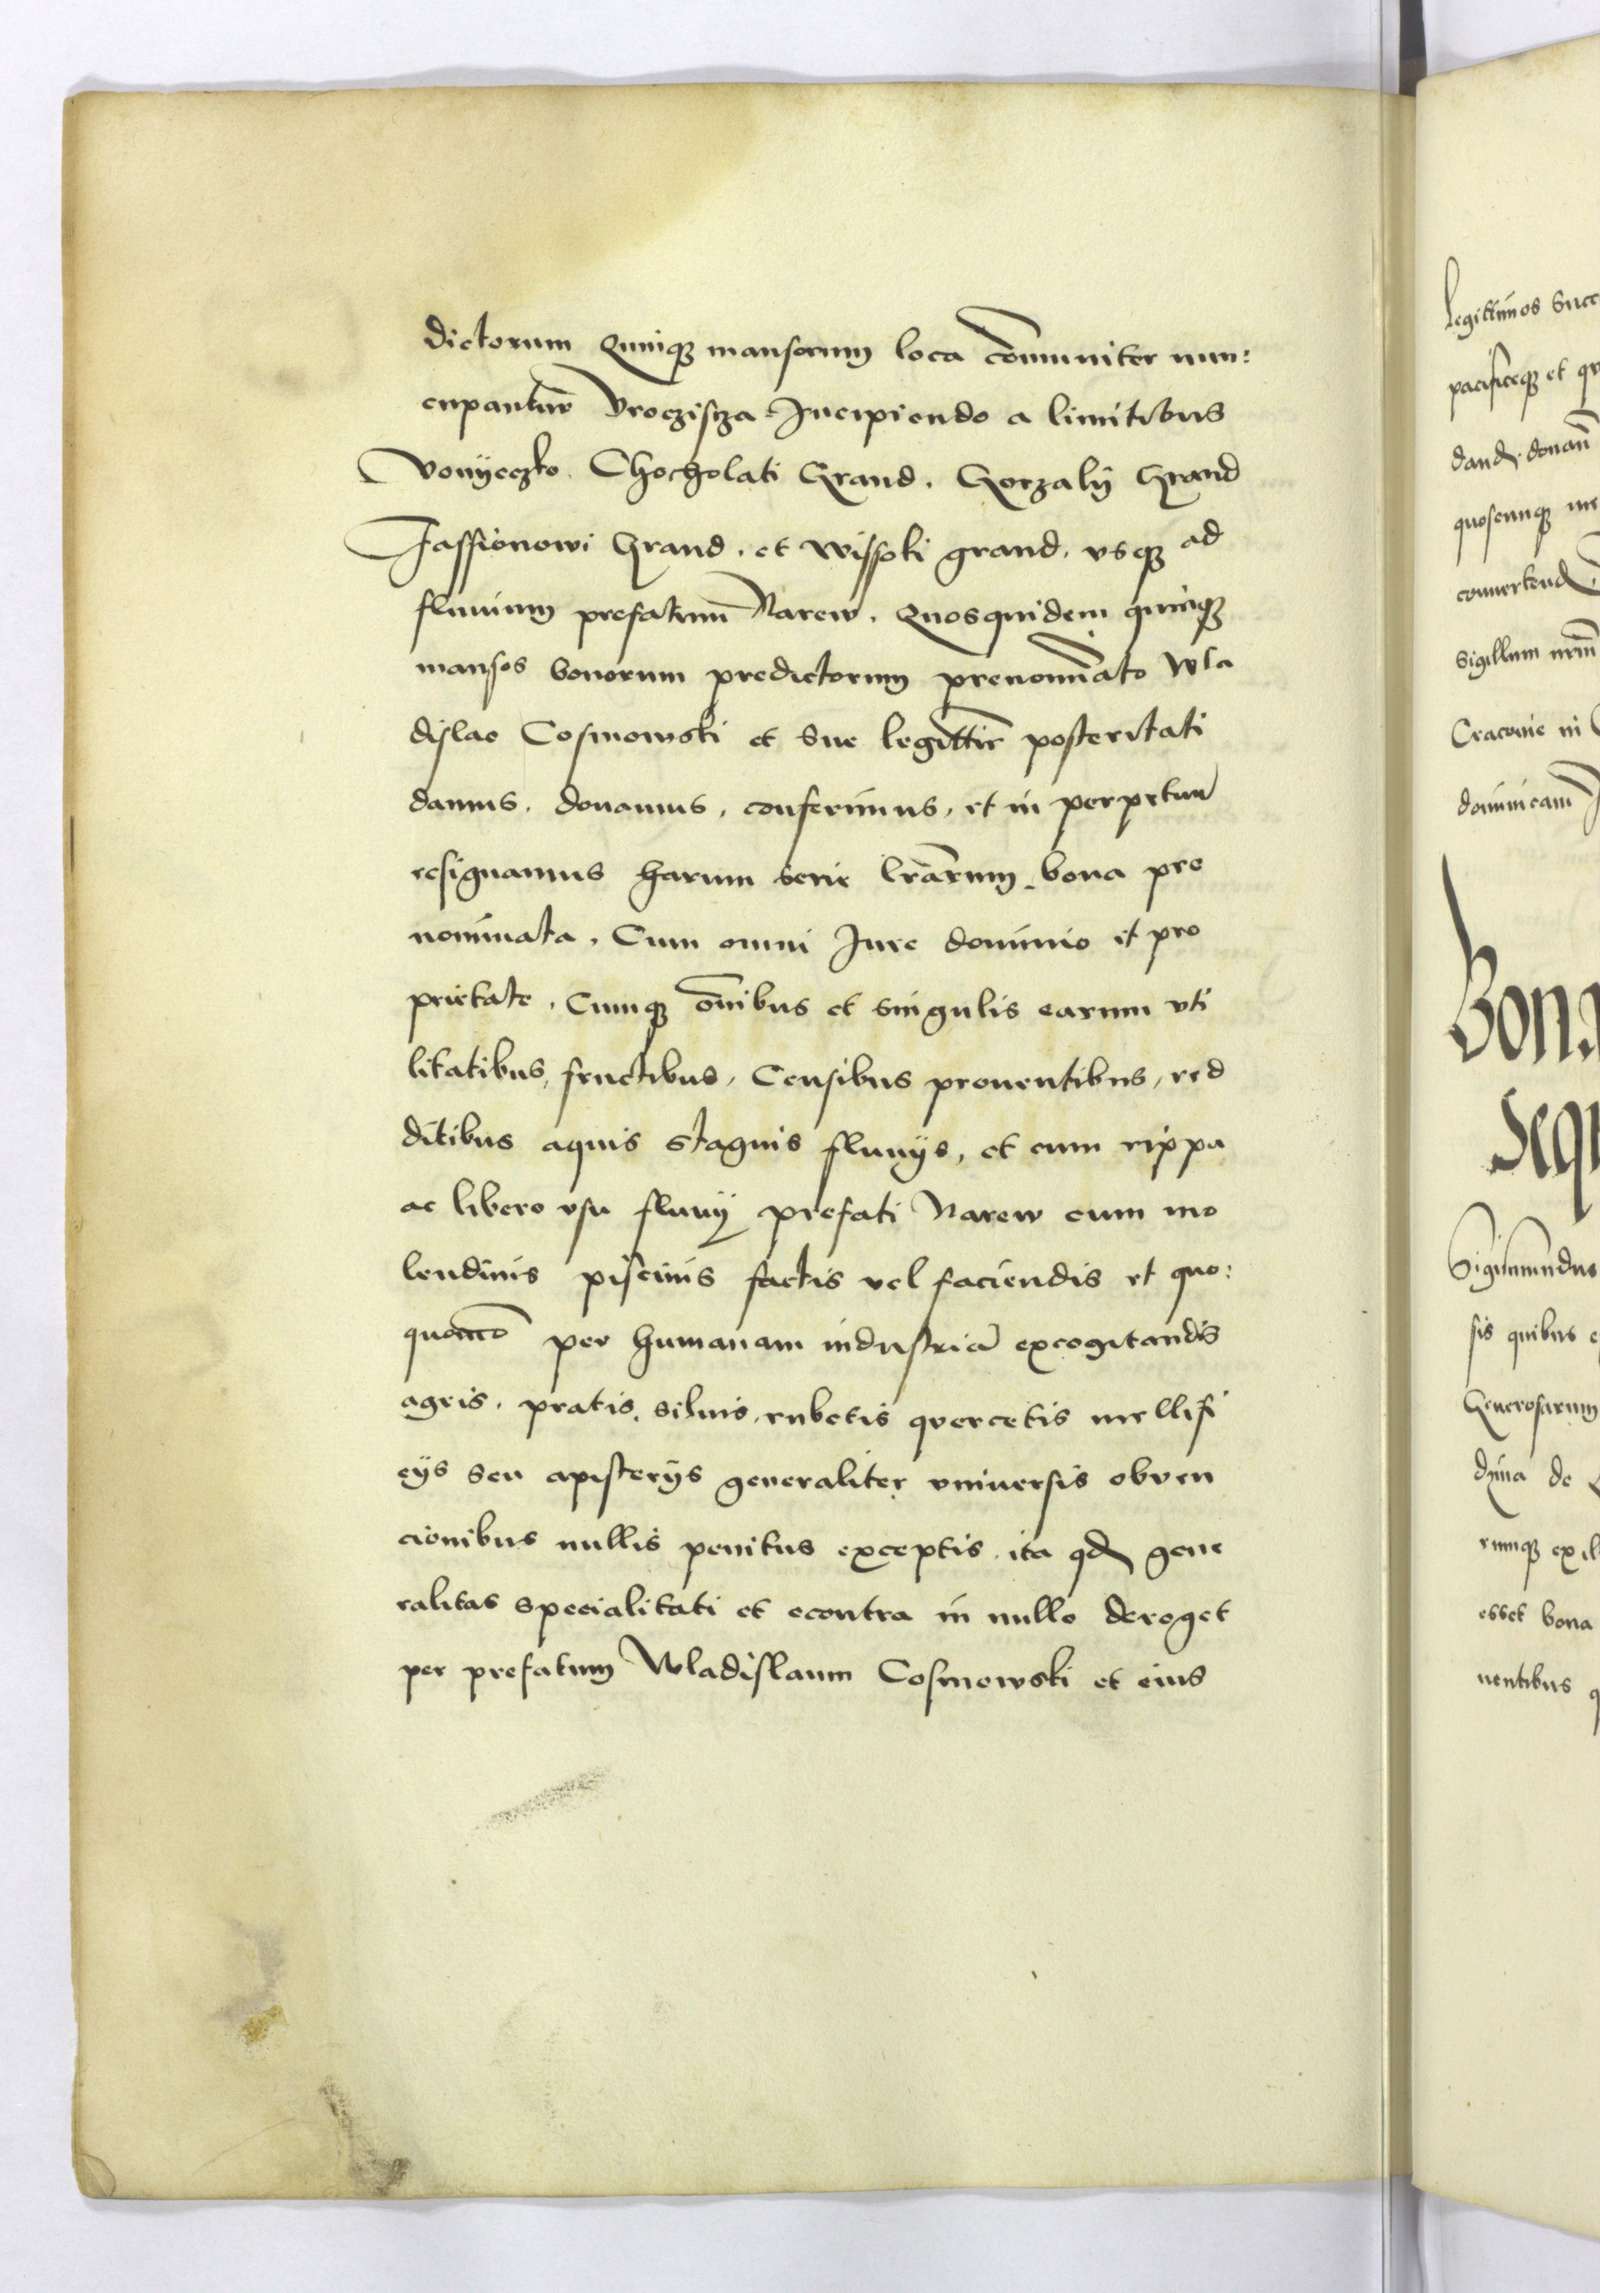 dictorum Quinqȝ mansorum loca cōmuniter nun:
cupantur Uroczisza Incipiendo a limitibus
Vonyeczko. Chocholati Grand. Gorzalÿ Grand
Jassionowi Grand. et Wissoki grand. vsqȝ ad
fluuium prefatum Narew. Quosquidem quinqȝ
mansos bonorum predictorum prenoīato Wla
dislao Cosmowski et Sue legittiē posteritati
damus. donamus. conferimus. et in perpetuū
resignamus harum serie lrārum. bona pre
nominata. Cum omni Jure dominio et pro
prietate. Cumqȝ oībus et singulis earum vti
litatibus, fructibus, Censibus prouentibus, red
ditibus aquis stagnis fluuÿs, et cum rippa
ac libero vsu fluuÿ prefati Narew cum mo
lendinis piscinis factis vel faciendis et quo:
quomō per humanam industriā excogitandis
agris. pratis, siluis, rubetis quercetis mellifi
cÿs seu apisterÿs generaliter vniuersis obuen
cionibus nullis penitus exceptis. ita qđ gene
ralitas specialitati et econtra in nullo deroget
per prefatum Wladislaum Cosmowski et eius
legittimos Succ
pacificeqȝ et
quoscunqȝ
sigillum nrm̄
Cracouie in
dominicam
Bona
Sequ
Sigismundus
sis quibus
Generosarum
de
rumqȝ
esset bona
uentibus